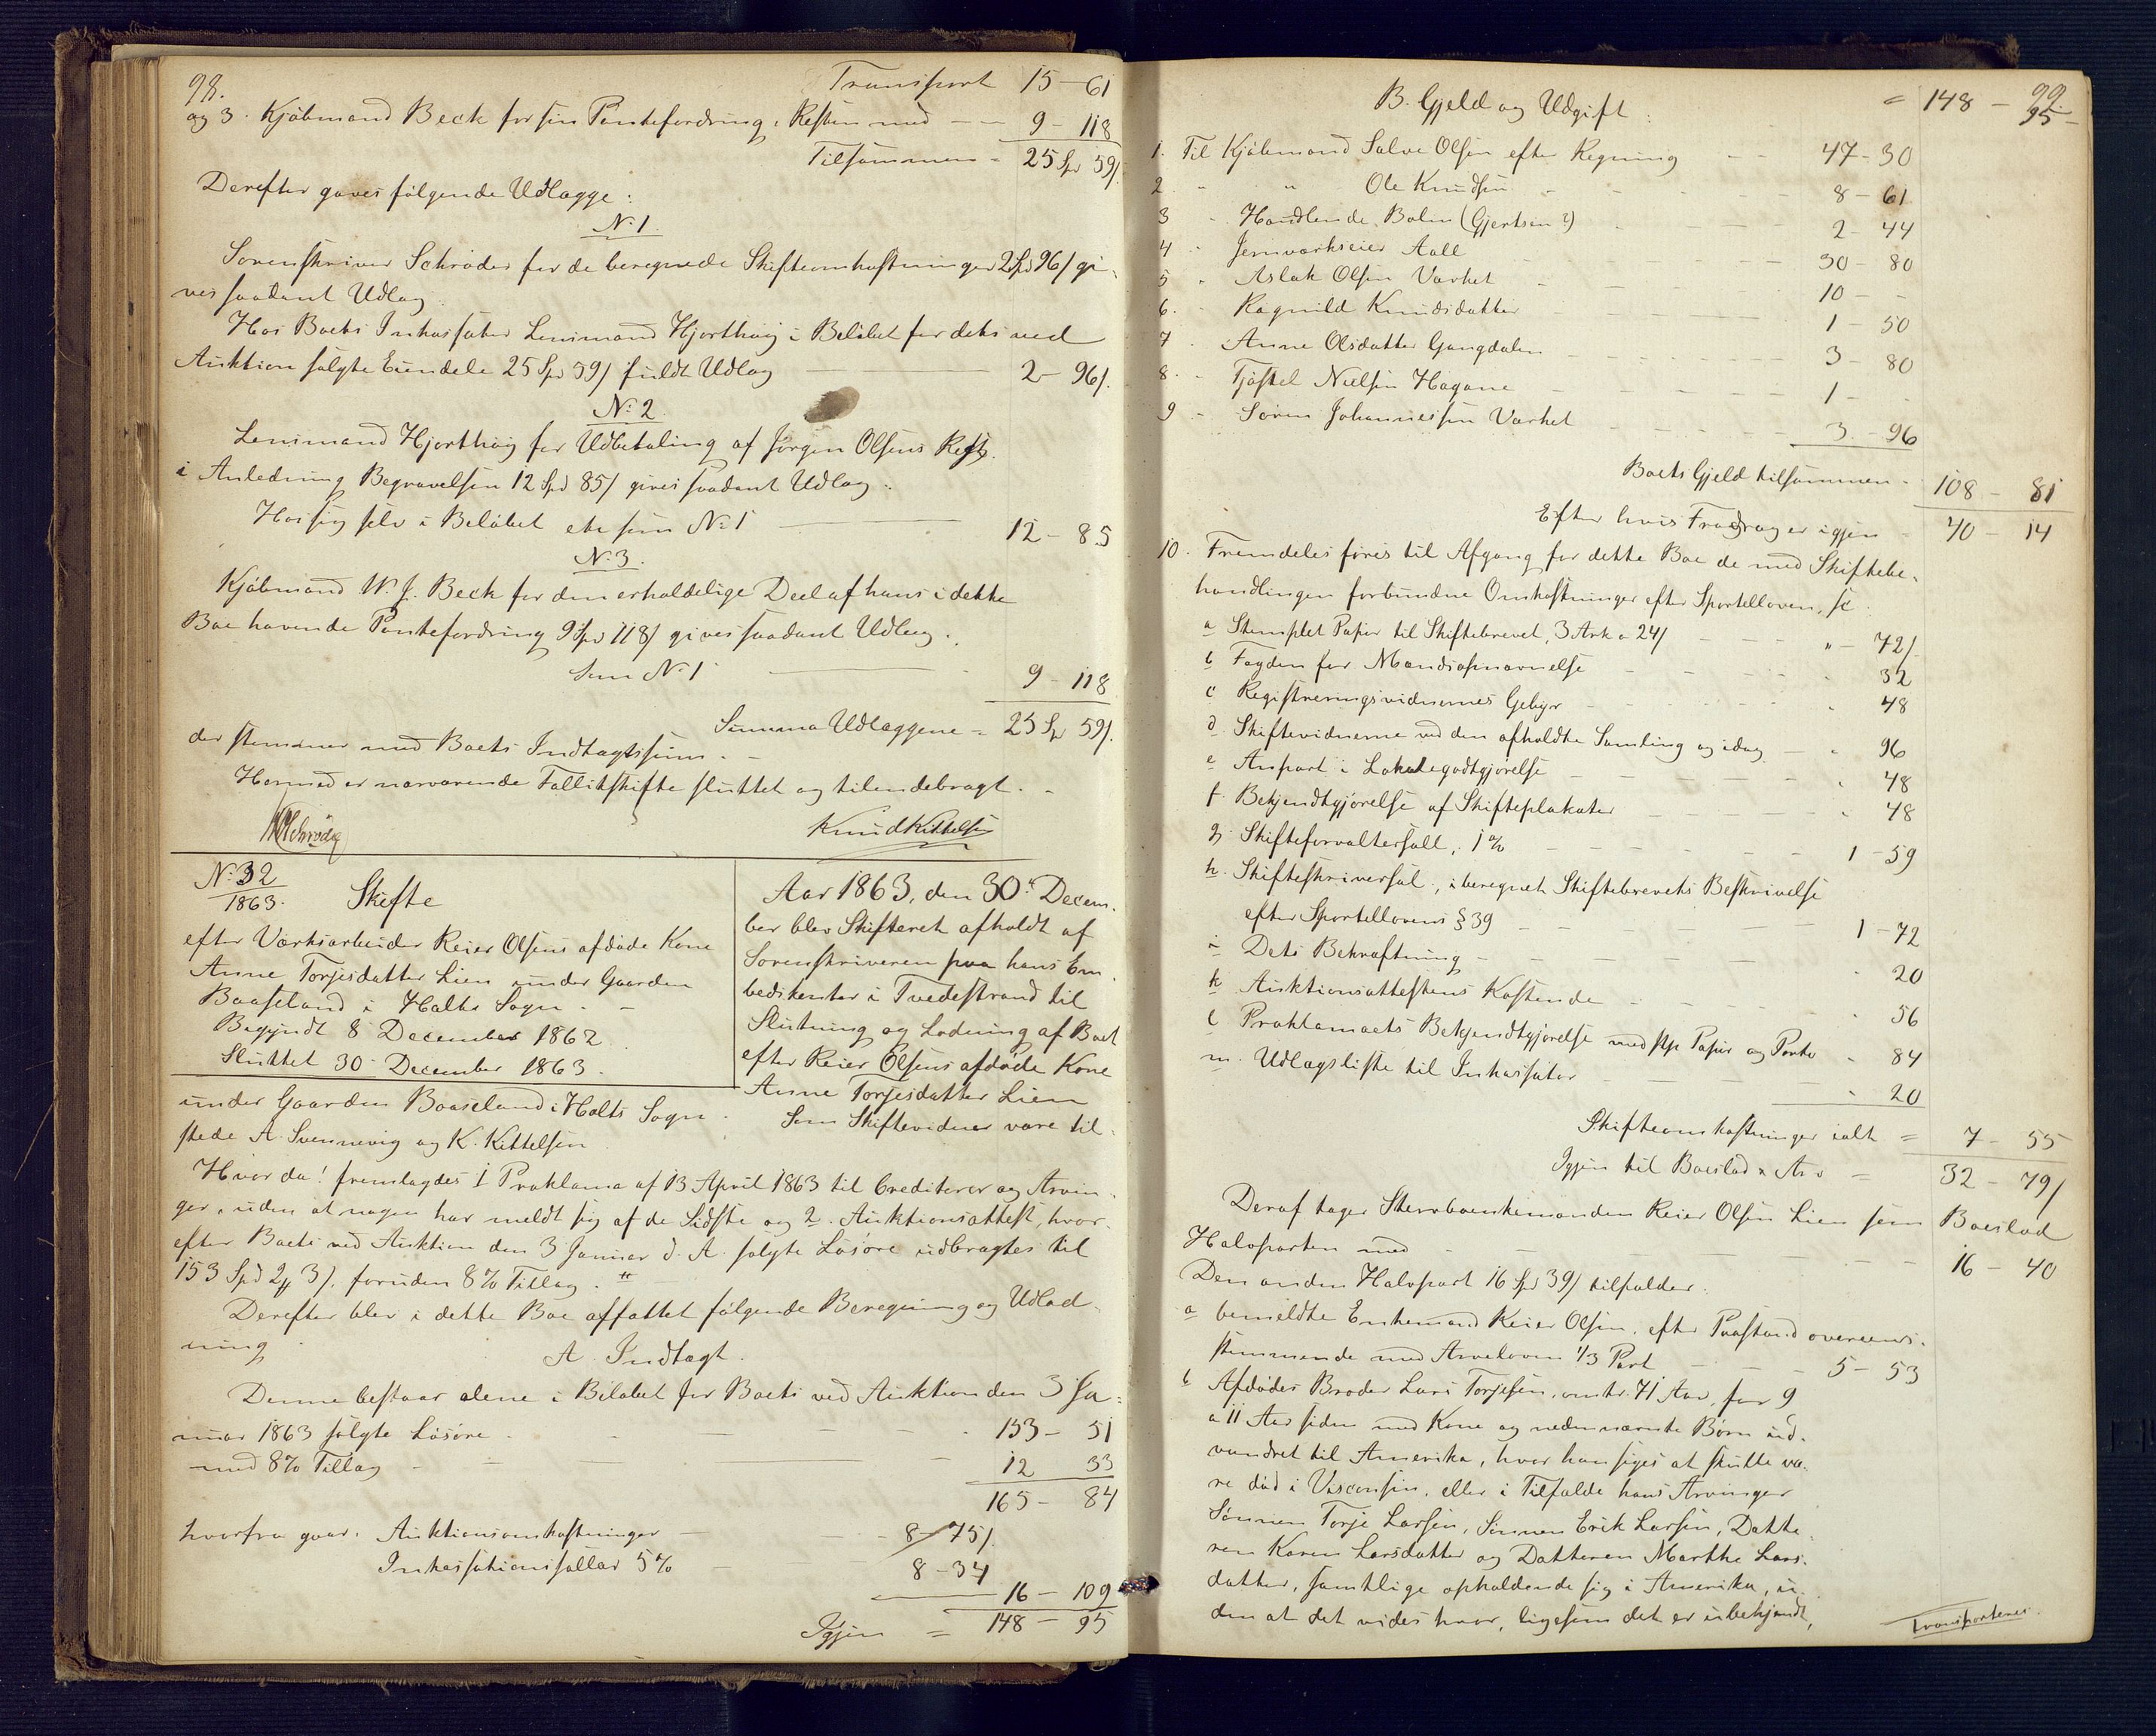 98.
Transport 15 - 61
og 3. Kjøbmand Beck for sin Pantefordring, Resten med - - 9 - 118
Tilsammen = 25 Spd 59/.
Derefter gaves følgende Udlægge:
No 1.
Sorenskriver Schrøder for de beregnede Skifteomkostninger 2 Spd 96/ gi-
ves saadant Udlæg.
Hos Boets Inkassator Lensmand Hjorthøig i Beløbet for dets ved
Auktion solgte Eiendele 25 Spd 59/ fuldt Udlæg 2 - 96/.
No 2.
Lensmand Hjorthøig for Udbetaling af Jørgen Olsens Regtg.
i Anledning Begravelsen 12 Spd 85/ gives saadant Udlæg:
Hos sig selv i Beløbet etc som No 1 12 - 85
No 3.
Kjøbmand W. J. Beck for den erholdelige Deel af hans i dette
Boe havende Pantefordring 9 Spd 118/ gives saadant Udlæg.
Som No 1 9 - 118
Summa Udlæggene = 25 Sp 59/.
der stemmer med Boets Indtægtssum. -
Hermed er nærværende Fallitskifte sluttet og tilendebragt. -
Schrøder
Knud Kittelsen
No 32
1863. Skifte
efter Værksarbeider Reier Olsens afdøde Kone
Anne Torjesdatter Lien under Gaarden
Baaseland i Holts Sogn. -
Begyndt 8 December 1862.
Sluttet 30 December 1863.
Aar 1863, den 30te Decem-
ber blev Skifteret afholdt af
Sorenskriveren paa hans Em-
bedskontor i Tvedestrand til
Slutning og Lodning af Boet
efter Reier Olsens afdøde Kone
Anne Torjesdatter Lien
under Gaarden Baaseland i Holts Sogn. Som Skiftevidner vare til-
stede A. Svennevig og K. Kittelsen.
Hvor da! fremlagdes 1 Proklama af 13 April 1863 til Creditorer og Arvin-
ger, uden at nogen har meldt sig af de Sidste og 2. Auktionsattest, hvor-
efter Boets ved Auktion den 3 Januar d. A. solgte Løsøre udbragtes til
153 Spd 2 # 3/. foruden 8% Tillæg."
Derefter blev i dette Boe affattet følgende Beregning og Udlod-
ning
A. Indtægt.
Denne bestaar alene i Beløbet for Boets ved Auktion den 3 Ja-
nuar 1863 solgte Løsøre - - - - 153 - 51
med 8% Tillæg - - - 12 33
165 - 84
hvorfra gaar: Auktionsomkostninger - 8 - 75/.
Inkassationssallær 5% - 8 - 34
16 - 109
Igjen = 148 - 95
99
B. Gjeld og Udgift: = 148 - 95 -
1. Til Kjøbmand Salve Olsen efter Regning - - 47 - 30
2. " " Ole Knudsen - - - 8 - 61
3 - Handlende Bolin (Gjertsen?) - - - 2 - 44
4 - Jernværkseier Aall - - - 30 - 80
5 - Aslak Olsen Værket - - - 10 - -
6. - Ragnild Knudsdatter - - - 1 - 50
7 - Anne Olsdatter Gangdalen - - - 3 - 80
8. - Tjøstel Nielsen Hagane - - - 1 - -
9 - Søren Johannessen Værket - - - 3 - 96
Boets Gjeld tilsammen - 108 - 81
Efter hvis Fradrag er igjen - 40 - 14
10. Fremdeles føres til Afgang for dette Boe de med Skiftebe-
handlingen forbundne Omkostninger efter Sportelloven, sc:
a Stemplet Papir til Skiftebrevet, 3 Ark a 24/ - - - " - 72/.
b Fogden for Mandsopnævnelse - - - 32
c Registreringsvidnernes Gebyr - - - 48
d. Skiftevidnerne ved den afholdte Samling og idag - " 96
e Anpart i Lokalegodtgjørelse - - - 48
f. Bekjendtgjørelse af Skifteplakater - - - 48
g. Skifteforvaltersall., 1% - - - 1 - 59
h. Skifteskriversal., iberegnet Skiftebrevets Beskrivelse
efter Sportellovens § 39 - - - 1 - 72
i Dets Bekræftning - - - 20
k Auktionsattestens Kostende - - - 56
l Proklamaets Bekjendtgjørelse med stp. Papir og Porto - 84
m. Udlægsliste til Inkassator - - - 20
Skifteomkostninger ialt = 7 - 55
Igjen til Boeslod & Arv = 32 - 79/
Deraf tager Stervboenkemanden Reier Olsen Lien som Boeslod
Halvparten med - - - 16 - 40
Den anden Halvpart 16 Spd 39/ tilfalder:
a bemeldte Enkemand Reier Olsen, efter Paastand overeens-
stemmende med Arveloven 1/3 Part - - - 5 - 53
b Afdødes Broder Lars Torjesen, omtr. 71 Aar, for 9
a 11 Aar siden med Kone og nedennævnte Børn ud-
vandret til Amerika, hvor han siges at skulle væ-
re død i Visconsin, eller i Tilfælde hans Arvinger
Sønnen Torje Larsen, Sønnen Erik Larsen, Datte-
ren Karen Larsdatter og Datteren Marthe Lars-
datter, samtlige opholdende sig i Amerika, u-
den at det vides hvor, ligesom det er ubekjendt,
Transporteres.